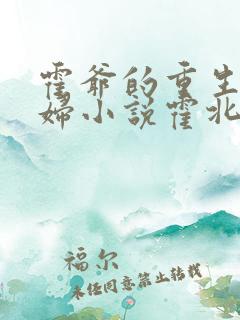 霍爷的重生
妇小说霍北
福尔
未经同意禁止转载